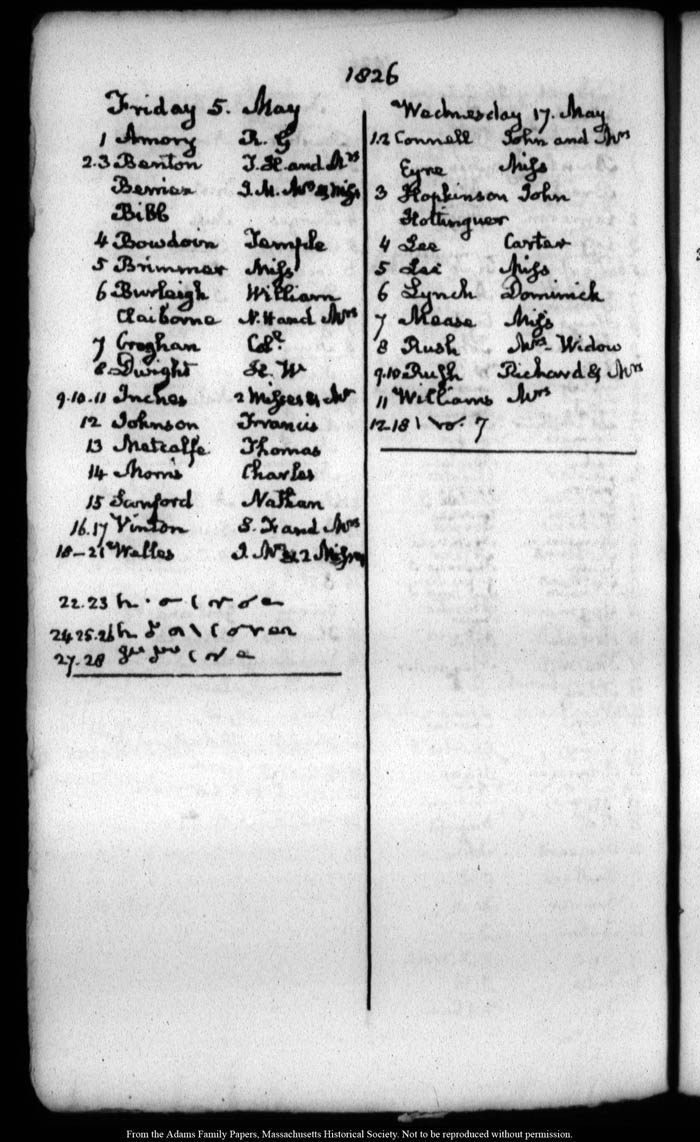 1826
Friday 5. May
1 Amory R. G
2.3 Benton T. H. and Mrs
Berrien J. M. Mrs & Miss
Bibb
4 Bowdoin Temple
5 Brimmer Miss
6 Burleigh William
Claiborne N. H and Mrs
7 Croghan Col.
8 Dwight H. W
9.10.11 Inches 2 Misses & Mr
12 Johnson Francis
13 Metcalfe Thomas
14 Morris Charles
15 Sanford Nathan
16.17 Vinton S. F and Mrs
18-21 Welles J. Mrs & 2 Misses
22.23
24.25.26
27.28
Wednesday 17. May
1.2 Connell John and Mrs
Eyre Miss
3 Hopkinson John
Hottinguer
4 Lee Carter
5 Lee Miss
6 Lynch Dominick
7 Mease Miss
8 Rush Mrs - Widow
9.10 Rush Richard & Mrs
11 Williams Mrs
12-18 7
From the Adams Family Papers, Massachusetts Historical Society. Not to be reproduced without permission.